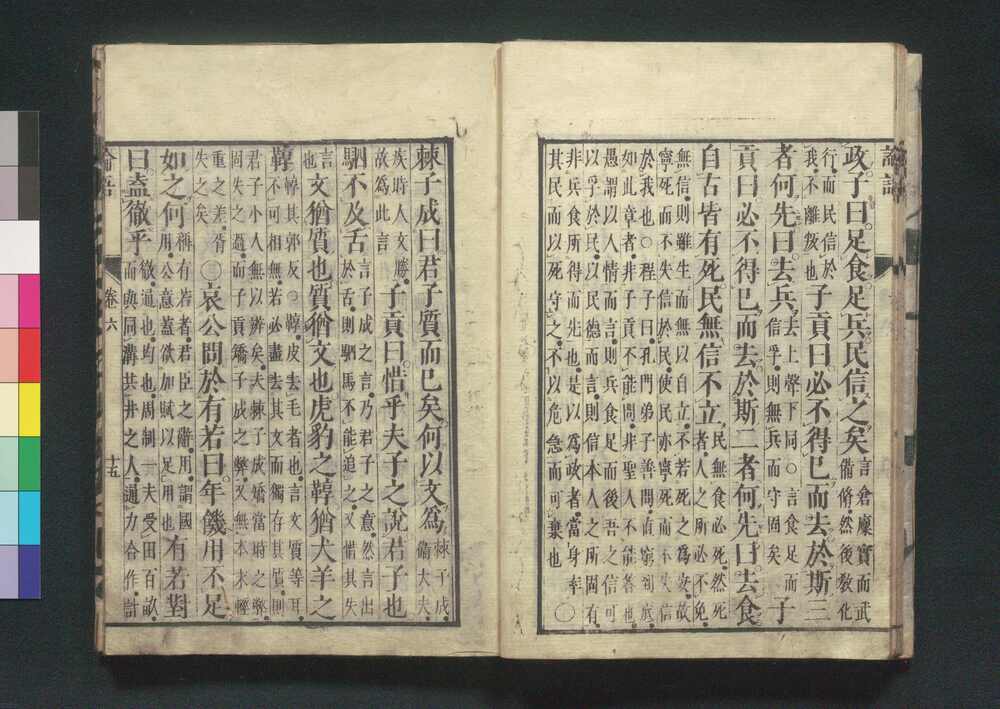 論語
政子曰足食足兵民信之矣言倉廩實而武備脩然後敎化
行而民信於我不離叛也子貢曰必不得已而去於斯三
者何先曰去兵去上聲下同○言食足而信孚則無兵而守固矣子
貢曰必不得已而去於斯二者何先曰去食
自古皆有死民無信不立民無食必死然死者人之所必不免
無信則雖生而無以自立不若死之爲安故
寧死而不失信於民使民亦寧死而不失信
於我也○程子曰孔門弟子善問直窮到底
如此章者非子貢不能問非聖人不能答也
愚謂以人情而言則兵食足而後吾之信可
以孚於民以民德而言則信本人之所固有
非兵食所得而先也是以爲政者當身率
其民而以死守之不以危急而可棄也○
棘子成曰君子質而已矣何以文爲棘子成衞大夫
疾時人文勝故爲此言子貢曰惜乎夫子之說君子也
駟不及舌言子成之言乃君子之意然言出於舌則駟馬不能追之又惜其失
言也文猶質也質猶文也虎豹之鞟猶犬羊之
鞟鞟其郭反○鞟皮去毛者也言文質等耳不可相無若必盡去其文而獨存其質則
君子小人無以辨矣夫棘子成矯當時之弊
固失之過而子貢矯子成之弊又無本末輕
重之差胥失之矣○哀公問於有若曰年饑用不足
如之何稱有若者君臣之辭用謂國用公意蓋欲加賦以足用也有若對
曰盍徹乎徹通也均也周制一夫受田百畝而與同溝共井之人通力合作計
論語 卷六 十五